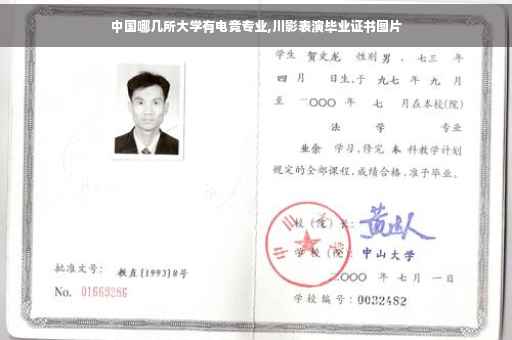 中国哪几所大学有电竞专业,川影表演毕业证书图片
学生 贺文龙 性别 男 、七三 年
四 月 日生,于 九七 年 九 月
至 二〇〇〇 年 七 月在本校(院)
法 学 专业
业余 学习,修完 本 科教学计划
规定的全部课程,成绩合格,准予毕业。
校(院)长:
学校(院): 中山大学
批准文号: 教直[1993]8号
二〇〇〇 年 七 月 一 日
No. 01669286
学校编号: 0032482